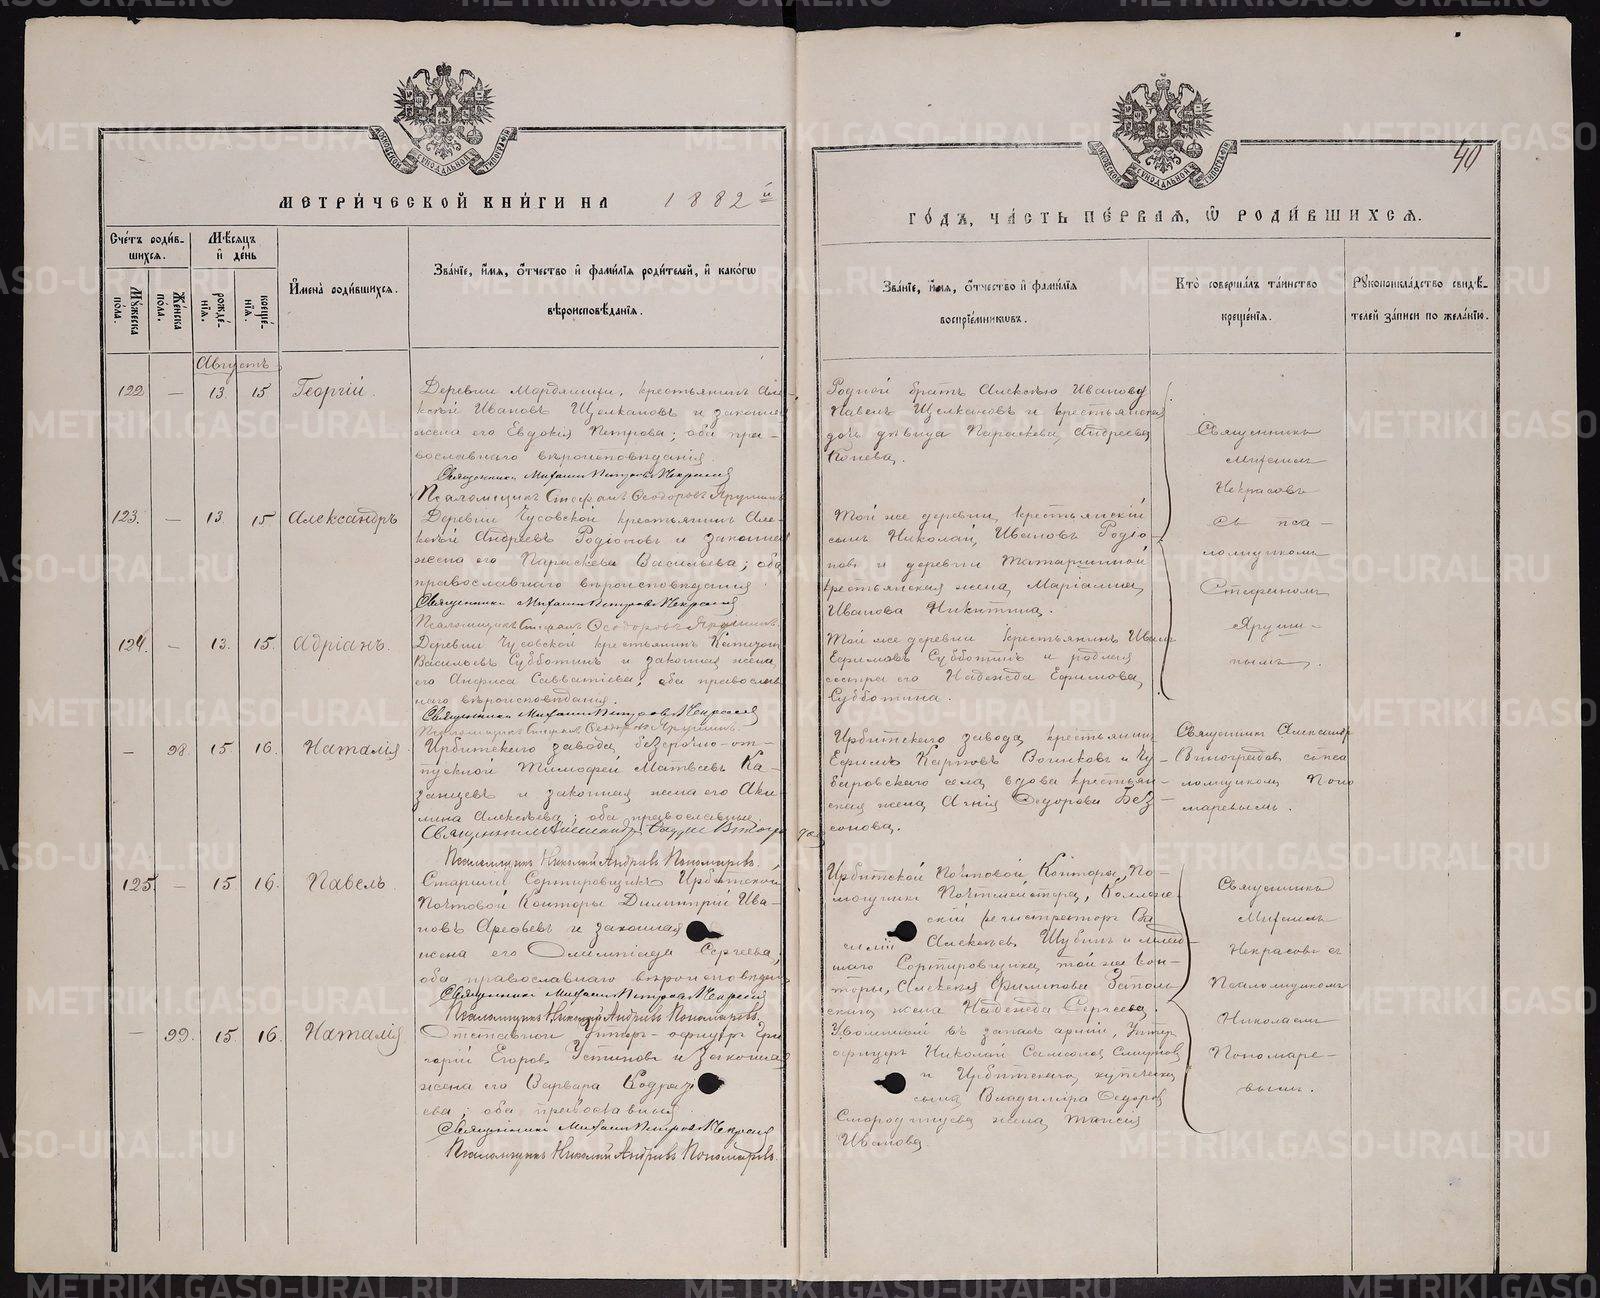 МЕТРИЧЕСКОЙ КНИГИ НА 1882й
ГОДЪ, ЧАСТЬ ПЕРВАЯ, Ѡ РОДИВШИХСЯ.
40
Счетъ родив-
шихся.
Мѣсяцъ
и день
Мужеска
пола.
Женска
пола.
рожде-
нія.
креще-
нія.
Имена родившихся.
Званіе, имя, отчество и фамилія родителей, и какогѡ
вѣроисповѣданія.
Званіе, имя, отчество и фамилія
воспріемникѡвъ.
Кто совершалъ таинство
крещенія.
Рукоприкладство свидѣ-
телей записи по желанію.
Августъ
122 — 13. 15 Георгій.
Деревни Мордяшихи, крестьянинъ Але-
ксѣй Ивановъ Щелкановъ и законная
жена его Евдокія Петрова; оба пра-
вославнаго вѣроисповѣданія.
Священникъ Михаилъ Петровъ Некрасовъ
Псаломщикъ Стефанъ Ѳеодоровъ Ярушинъ
Родной братъ Алексѣю Иванову
Павелъ Щелкановъ и крестьянская
дочь дѣвица Параскева Андреева
Конева.
Священникъ
Михаилъ
Некрасовъ
съ пса-
ломщикомъ
Стефаномъ
Яруши-
нымъ.
123. — 13. 15 Александръ
Деревни Чусовской крестьянинъ Але-
ксѣй Андреевъ Родіоновъ и законная
жена его Параскева Васильева; оба
православнаго вѣроисповѣданія.
Священникъ Михаилъ Петровъ Некрасовъ
Псаломщикъ Стефанъ Ѳеодоровъ Ярушинъ
Той же деревни, крестьянскій
сынъ Николай Ивановъ Родіо-
новъ и деревни Татаркиной
крестьянская жена Маріамна
Иванова Никитина.
124. — 13. 15. Адріанъ.
Деревни Чусовской крестьянинъ
Васильевъ Субботинъ и законная жена
его Анфиса Савватіева; оба православ-
наго вѣроисповѣданія.
Священникъ Михаилъ Петровъ Некрасовъ
Псаломщикъ Стефанъ Ѳеодоровъ Ярушинъ.
Той же деревни крестьянинъ Иванъ
Ефимовъ Субботинъ и родная
сестра его Надежда Ефимова
Субботина.
— 98. 15. 16. Наталія
Ирбитскаго завода, безсрочно-от-
пускной Тимофей Матвѣевъ Ка-
занцевъ и законная жена его Аки-
лина Алексѣева; оба православные.
Священникъ Александръ Виноградовъ
Псаломщикъ Николай Андреевъ Пономаревъ.
Ирбитскаго завода, крестьянинъ
Ефимъ Карповъ Воинковъ и Чу-
баровскаго села, вдова крестьян-
ская жена Агнія Ѳедорова Без-
сонова.
Священникъ Александръ
Виноградовъ съ пса-
ломщикомъ Поно-
маревымъ.
125. — 15 16. Павелъ.
Старшій Сортировщикъ Ирбитской
Почтовой Конторы Димитрій Ива-
новъ Арефьевъ и законная
жена его Олимпіада Сергѣева;
оба православнаго вѣроисповѣданія
Священникъ Михаилъ Петровъ Некрасовъ
Псаломщикъ Николай Андреевъ Пономаревъ.
Ирбитской Почтовой Конторы, По-
мощникъ Почтмейстера, Коллеж-
скій регистраторъ Ва-
силій Алексѣевъ Шубинъ и млад-
шаго Сортировщика, той же Кон-
торы, Алексѣя Филипова Заполь-
скаго жена Надежда Сергѣева.
Священникъ
Михаилъ
Некрасовъ съ
Псаломщикомъ
Николаемъ
Пономаре-
вымъ.
— 99. 15 16. Наталія
Отставной Унтеръ-офицеръ Гри-
горій Егоровъ Устиновъ и законная
жена его Варвара Кодрать-
ева; оба православныя.
Священникъ Михаилъ Петровъ Некрасовъ
Псаломщикъ Николай Андреевъ Пономаревъ.
Уволенный въ запасъ арміи, Унтеръ
офицеръ Николай Смирновъ
и Ирбитскаго, купческа
сына Владиміра Ѳедорова
Смородинцева жена Таисія
Иванова.
METRIKI.GASO-URAL.RU